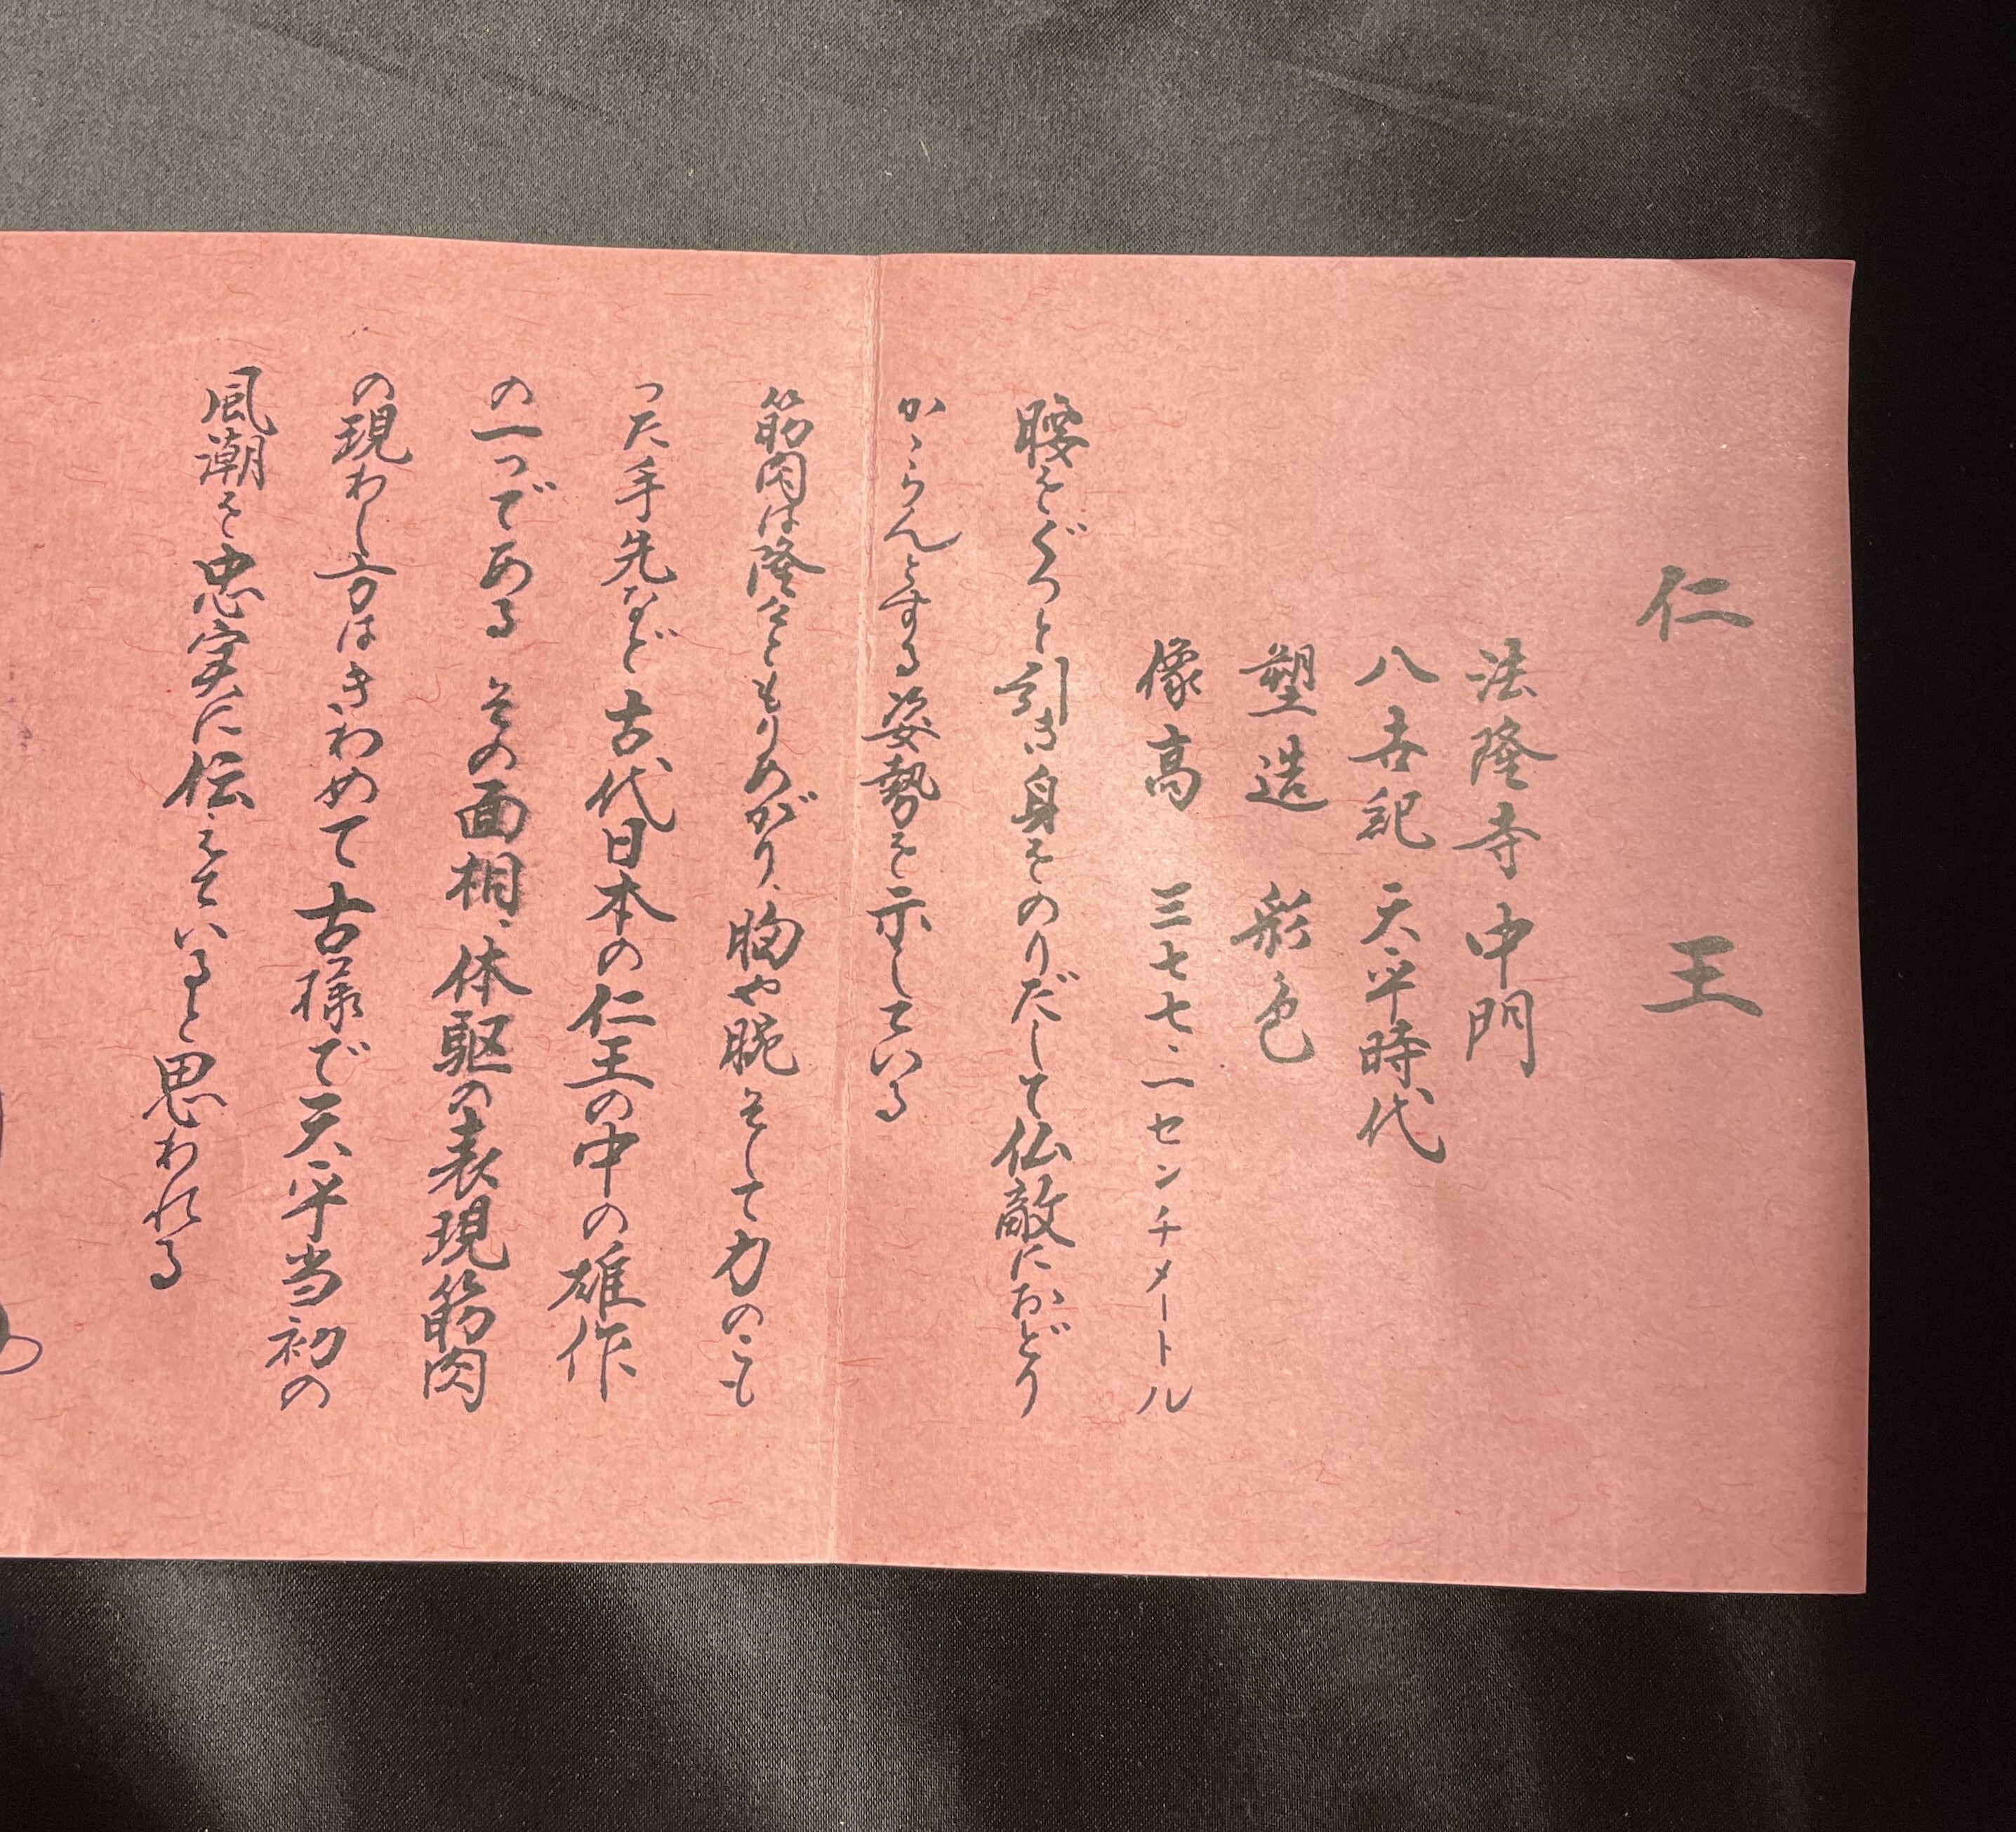 仁王
法隆寺中門
八世紀 天平時代
塑造 彩色
像高 三七七・二センチメートル
腰をぐっと引き身をのりだして仏敵におどり
かゝらんとする姿勢を示している
筋肉は隆々ともりあがり、胸や腕そして力のこも
った手先など古代日本の仁王の中の雄作
の一つである その面相、体駆の表現筋肉
の現わし方はきわめて古様で天平当初の
風潮を忠実に伝えていると思われる